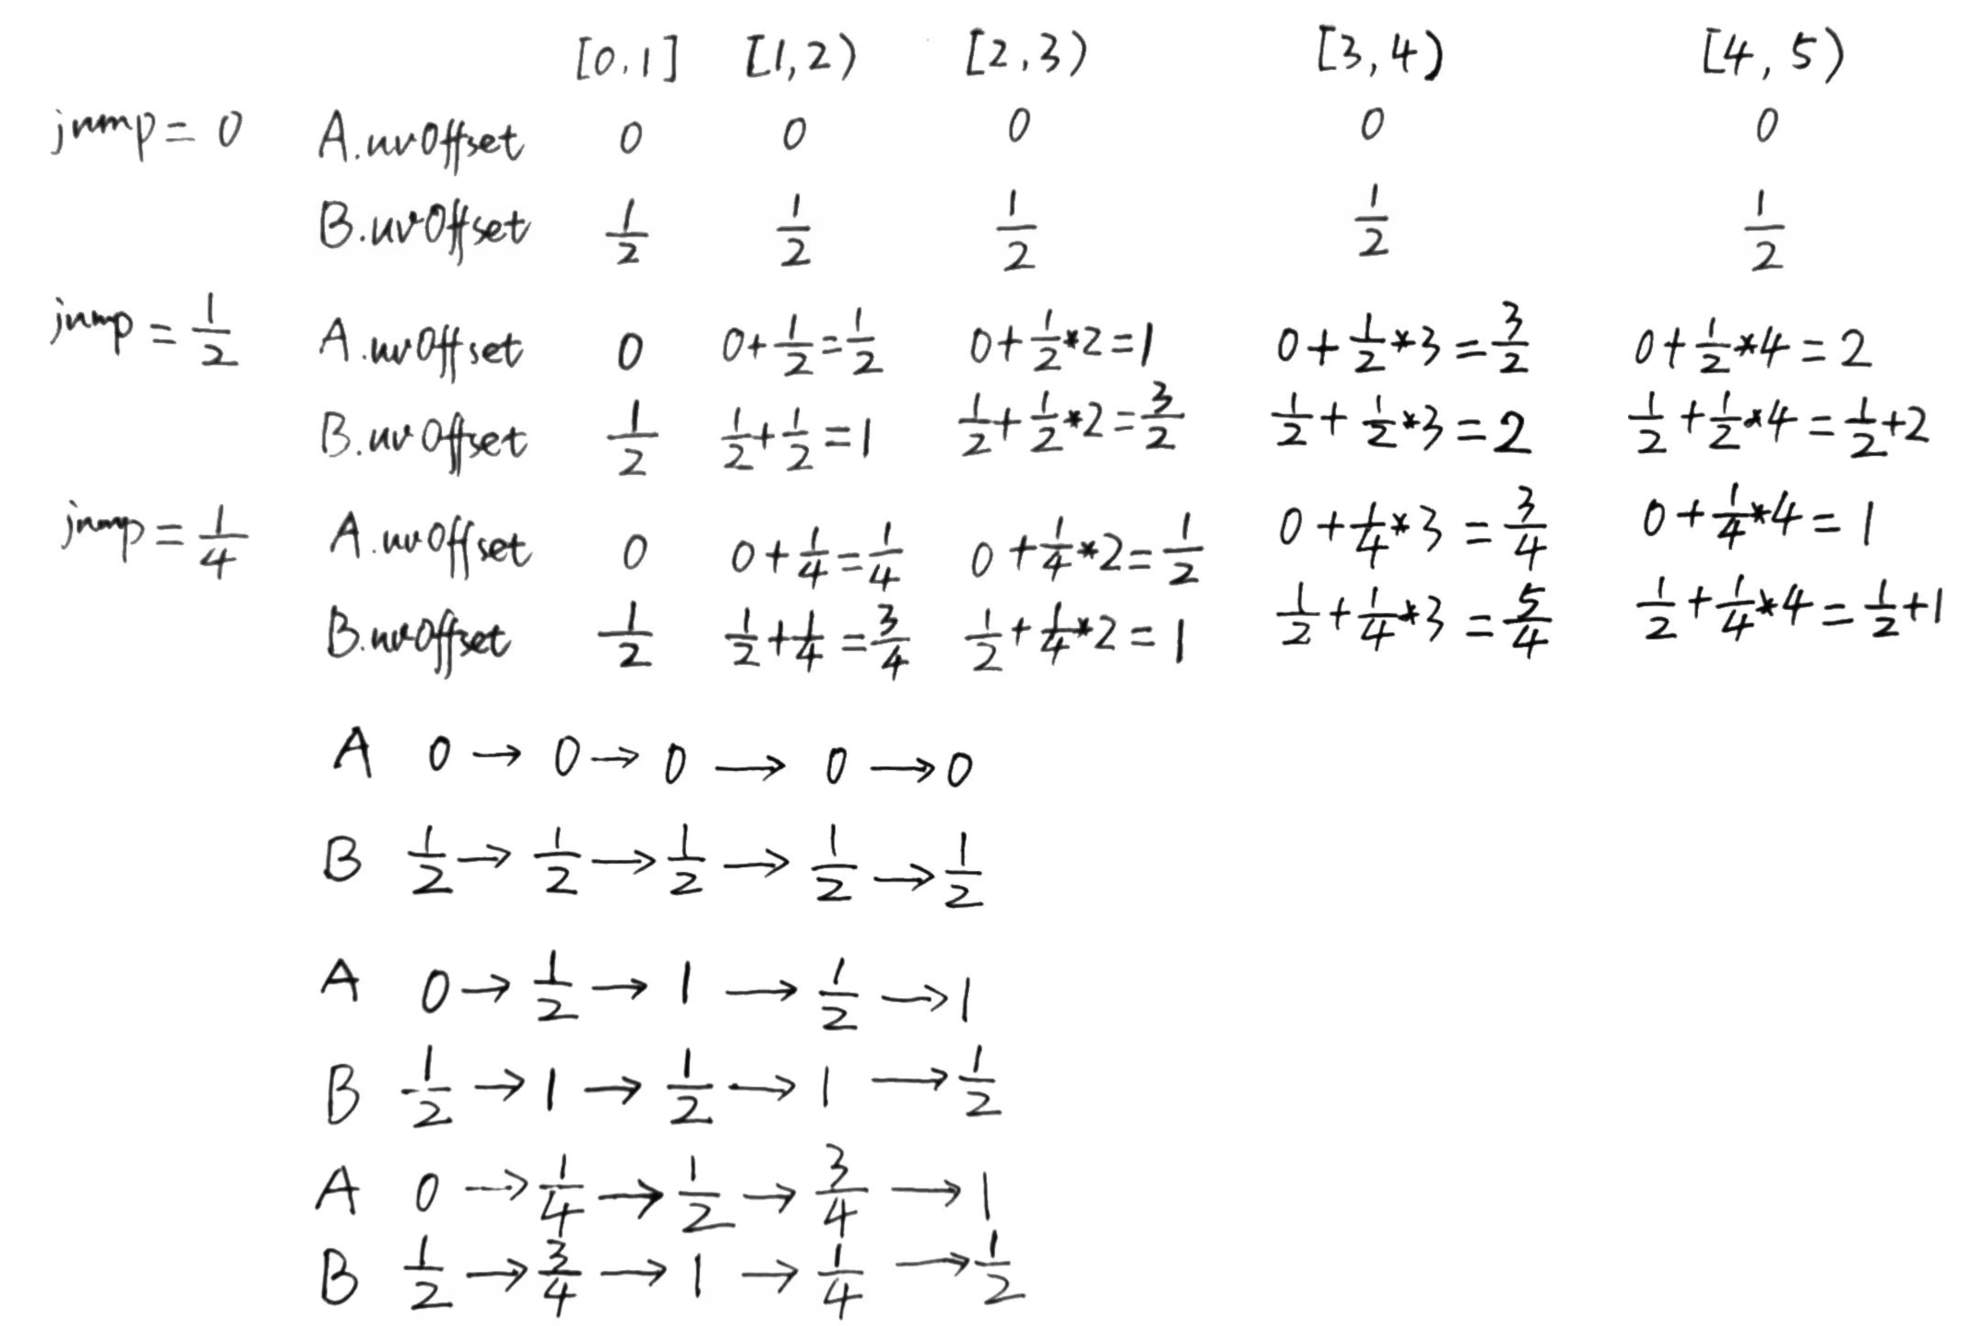 [0,1] [1,2) [2,3) [3,4) [4,5)
jump = 0 A.uvOffset 0 0 0 0 0
B.uvOffset 1/2 1/2 1/2 1/2 1/2
jump = 1/2 A.uvOffset 0 0+1/2=1/2 0+1/2*2=1 0+1/2*3=3/2 0+1/2*4=2
B.uvOffset 1/2 1/2+1/2=1 1/2+1/2*2=3/2 1/2+1/2*3=2 1/2+1/2*4=1/2+2
jump = 1/4 A.uvOffset 0 0+1/4=1/4 0+1/4*2=1/2 0+1/4*3=3/4 0+1/4*4=1
B.uvOffset 1/2 1/2+1/4=3/4 1/2+1/4*2=1 1/2+1/4*3=5/4 1/2+1/4*4=1/2+1
A 0 → 0 → 0 → 0 → 0
B 1/2 → 1/2 → 1/2 → 1/2 → 1/2
A 0 → 1/2 → 1 → 1/2 → 1
B 1/2 → 1 → 1/2 → 1 → 1/2
A 0 → 1/4 → 1/2 → 3/4 → 1
B 1/2 → 3/4 → 1 → 1/4 → 1/2